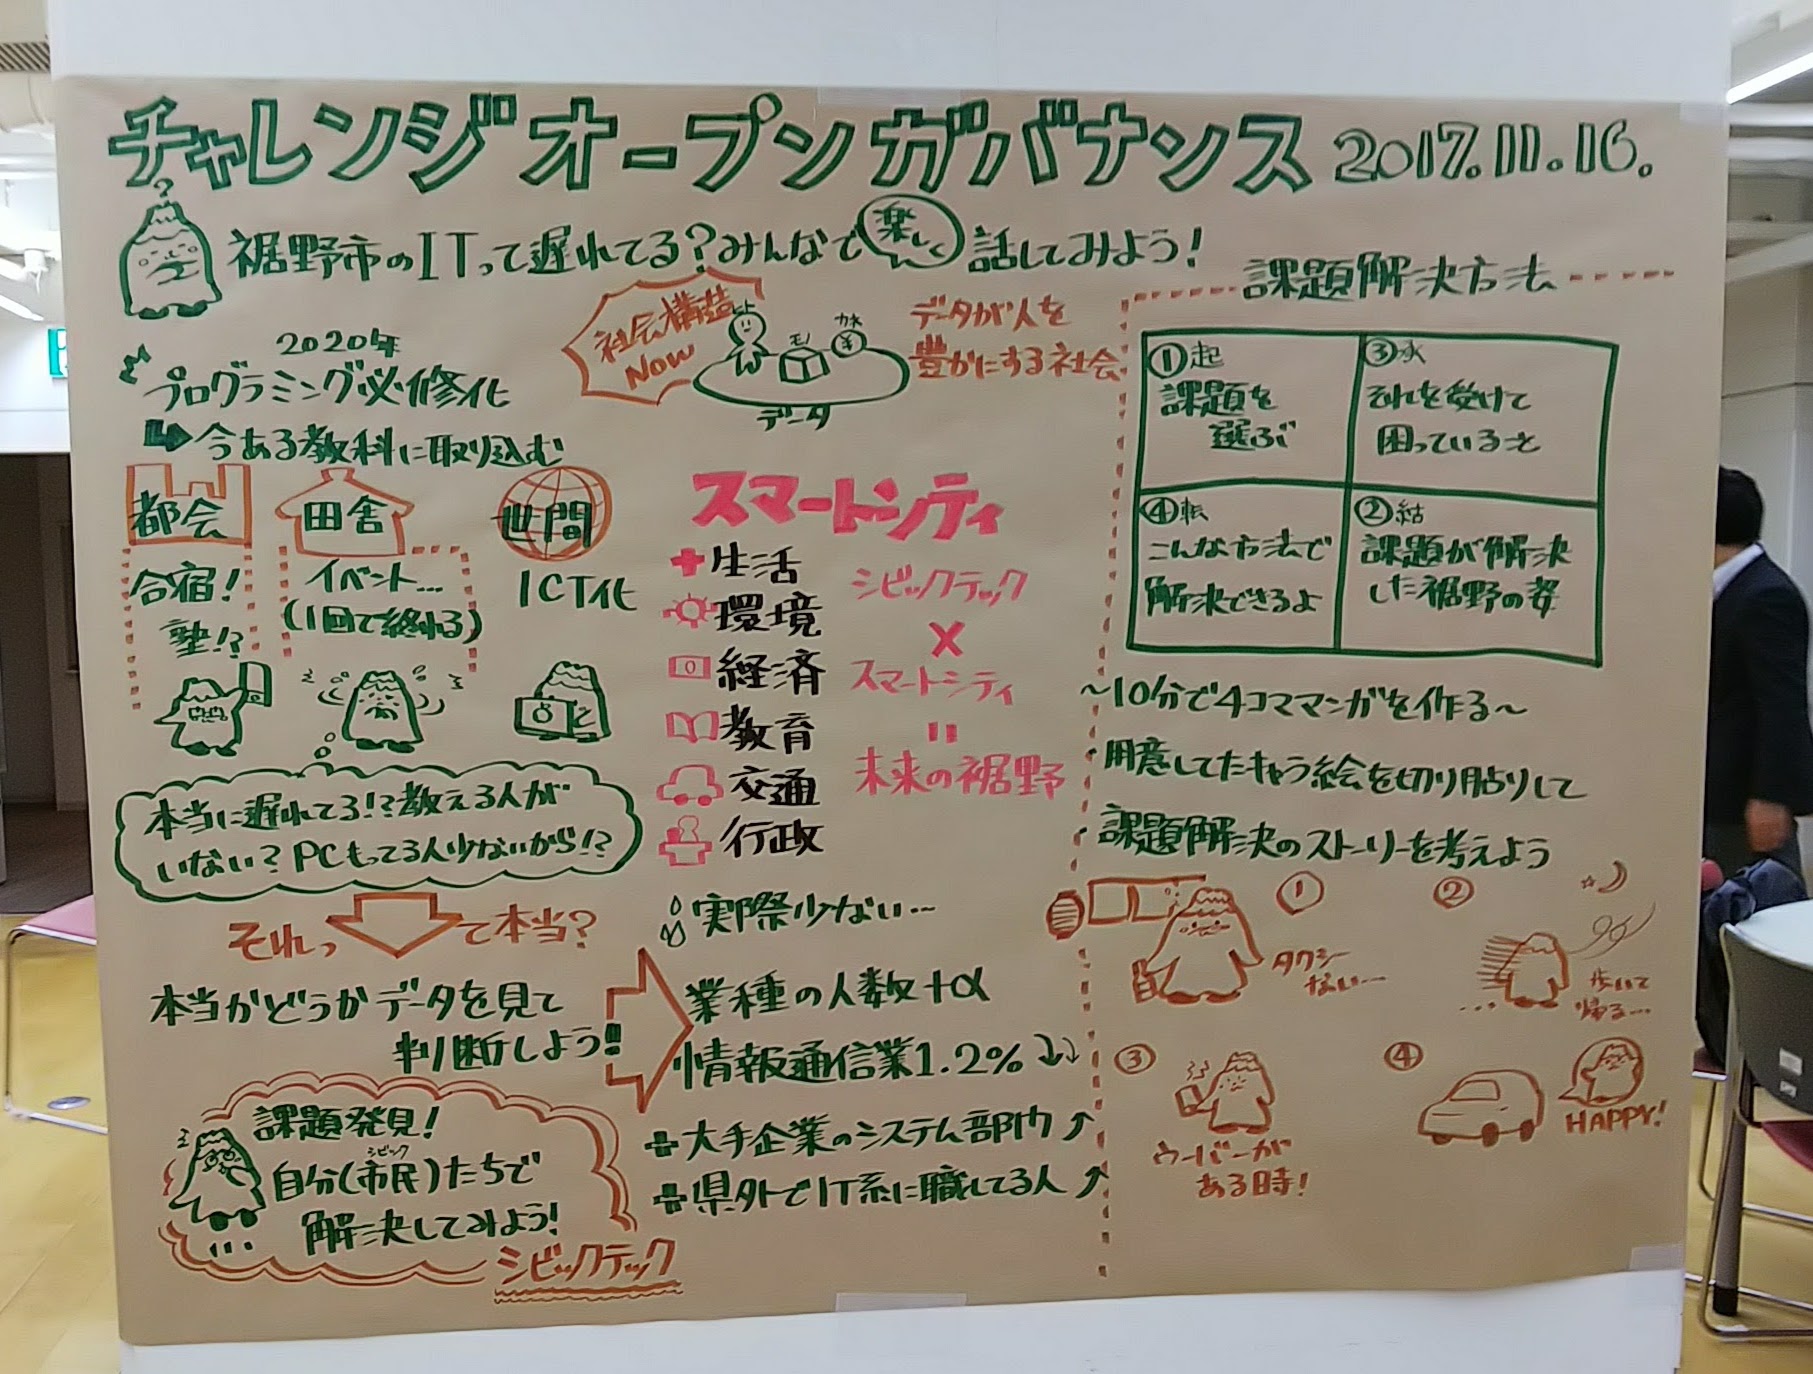 チャレンジオープンガバナンス 2017.11.16.
?
裾野市のITって遅れてる?みんなで楽しく話してみよう!
2020年
プログラミング必修化
今ある教科に取り込む
都会
合宿!
塾!?
田舎
イベント...
(1回で終わる)
世間
ICT化
本当に遅れてる!?教える人が
いない?PCもってる人少ないから!?
それって本当?
本当かどうかデータを見て
判断しよう!
課題発見!
シビック
自分(市民)たちで
解決してみよう!
シビックテック
社会構造
Now
ヒト
モノ
カネ
¥
データ
データが人を
豊かにする社会
スマートシティ
生活
環境
経済
教育
交通
行政
シビックテック
×
スマートシティ
=
未来の裾野
実際少ない...
業種の人数+α
情報通信業1.2%
+大手企業のシステム部門
+県外でIT系に職してる人
課題解決方法
①起
課題を
選ぶ
③承
それを受けて
困っていること
④転
こんな方法で
解決できるよ
②結
課題が解決
した裾野の姿
~10分で4コママンガを作る~
・用意してたキャラ絵を切り貼りして
・課題解決のストーリーを考えよう
①
タクシー
ない...
②
歩いて
帰る...
③
ウーバーが
ある時!
④
HAPPY!